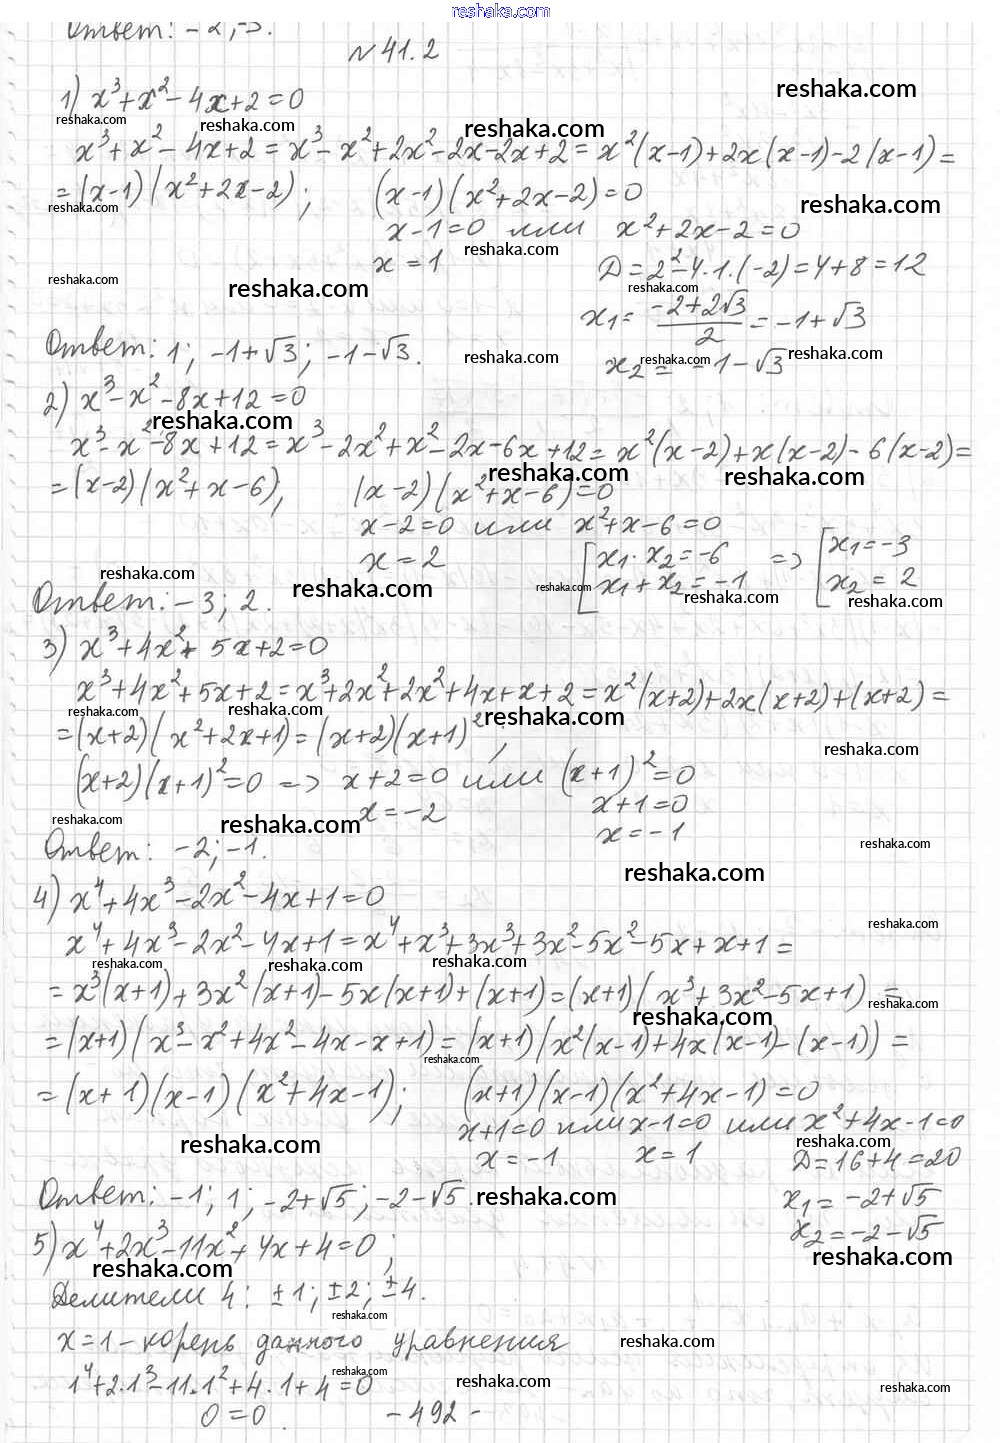 reshaka.com
Ответ: -2; -3.
№41.2
1) x³+x²-4x+2=0
x³+x²-4x+2=x³-x²+2x²-2x-2x+2=x²(x-1)+2x(x-1)-2(x-1)=
=(x-1)(x²+2x-2); (x-1)(x²+2x-2)=0
x-1=0 или x²+2x-2=0
x=1 D=2²-4·1·(-2)=4+8=12
x₁=(-2+2√3)/2=-1+√3
Ответ: 1; -1+√3; -1-√3. x₂=-1-√3
2) x³-x²-8x+12=0
x³-x²-8x+12=x³-2x²+x²-2x-6x+12=x²(x-2)+x(x-2)-6(x-2)=
=(x-2)(x²+x-6); (x-2)(x²+x-6)=0
x-2=0 или x²+x-6=0
x=2 [x₁·x₂=-6 => [x₁=-3
x₁+x₂=-1 x₂=2
Ответ: -3; 2.
3) x³+4x²+5x+2=0
x³+4x²+5x+2=x³+2x²+2x²+4x+x+2=x²(x+2)+2x(x+2)+(x+2)=
=(x+2)(x²+2x+1)=(x+2)(x+1)²;
(x+2)(x+1)²=0 => x+2=0 или (x+1)²=0
x=-2 x+1=0
x=-1
Ответ: -2; -1.
4) x⁴+4x³-2x²-4x+1=0
x⁴+4x³-2x²-4x+1=x⁴+x³+3x³+3x²-5x²-5x+x+1=
=x³(x+1)+3x²(x+1)-5x(x+1)+(x+1)=(x+1)(x³+3x²-5x+1)=
=(x+1)(x³-x²+4x²-4x-x+1)=(x+1)(x²(x-1)+4x(x-1)-(x-1))=
=(x+1)(x-1)(x²+4x-1); (x+1)(x-1)(x²+4x-1)=0
x+1=0 или x-1=0 или x²+4x-1=0
x=-1 x=1 D=16+4=20
Ответ: -1; 1; -2+√5; -2-√5. x₁=-2+√5
x₂=-2-√5
5) x⁴+2x³-11x²+4x+4=0;
Делители 4: ±1; ±2; ±4.
x=1-корень данного уравнения
1⁴+2·1³-11·1²+4·1+4=0
0=0. -492-